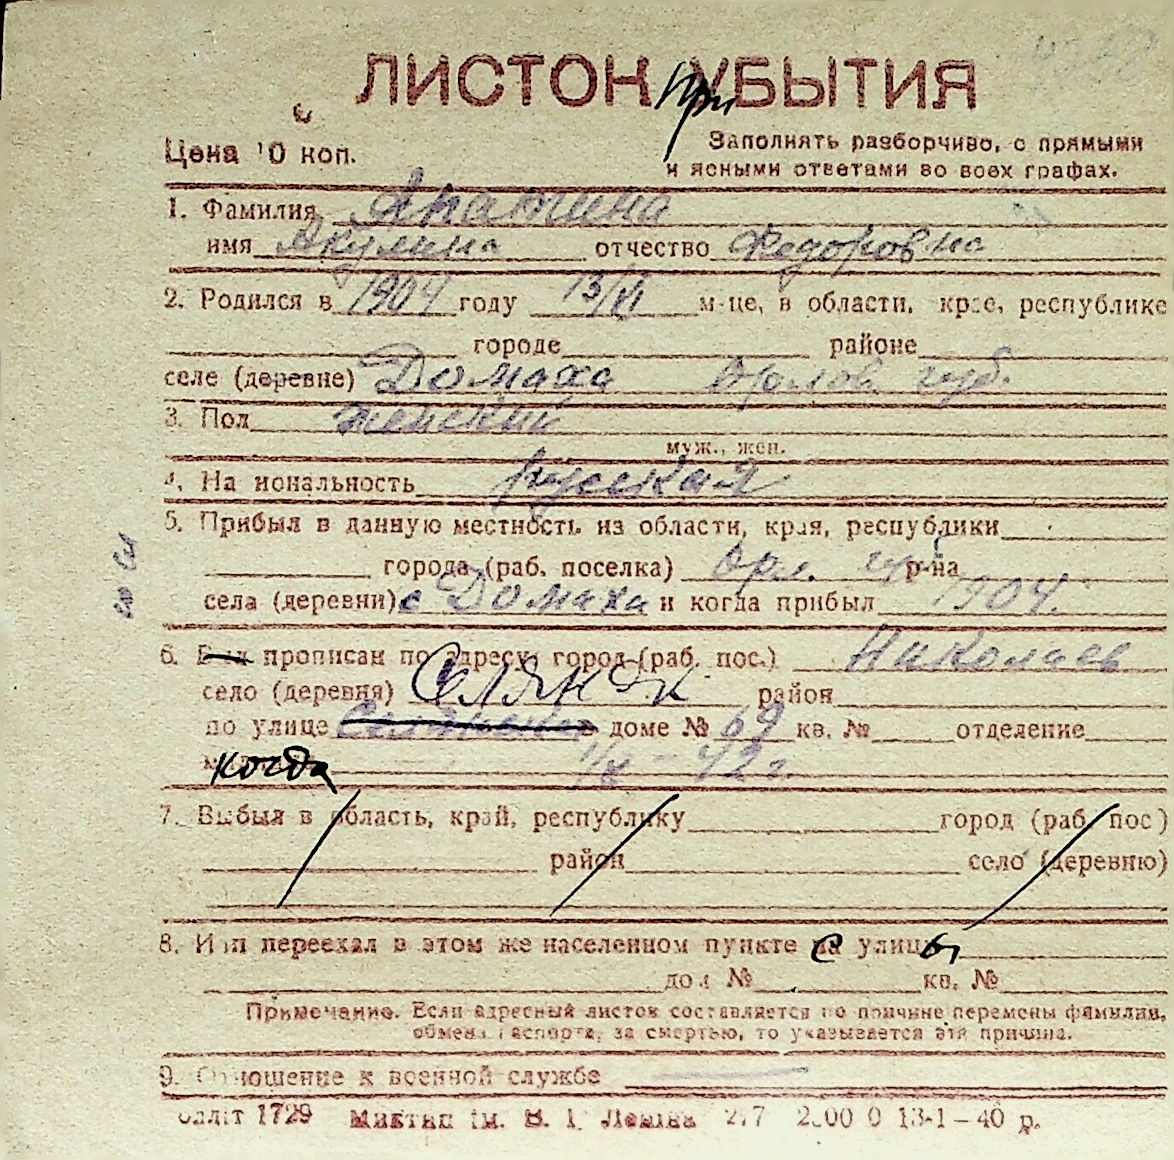 ЛИСТОК УБЫТИЯ
При
Цена 10 коп.
Заполнять разборчиво, с прямыми
и ясными ответами во всех графах.
1. Фамилия Апатина
имя Акулина отчество Федоровна
2. Родился в 1904 году 13/VI м-це, в области, крае, республике
городе районе
селе (деревне) Домаха Орлов. губ.
3. Пол женский
муж., жен.
4. Национальность русская
5. Прибыл в данную местность из области, края, республики
города (раб. поселка) Орл. губ р-на
села (деревни) с Домаха и когда прибыл 1904.
6. Был прописан по адресу: город (раб. пос.) Николаев
село (деревня) район
по улице доме № 69 кв. № отделение
когда 42 г.
7. Выбыл в область, край, республику город (раб. пос)
район село (деревню)
8. Или переехал в этом же населенном пункте с улицы
дом № кв. №
Примечание. Если адресный листок составляется по причине перемены фамилии,
обмена паспорта, за смертью, то указывается эта причина.
9. Отношение к военной службе
1729 ім. В. І. Леніна 13-1-40 р.